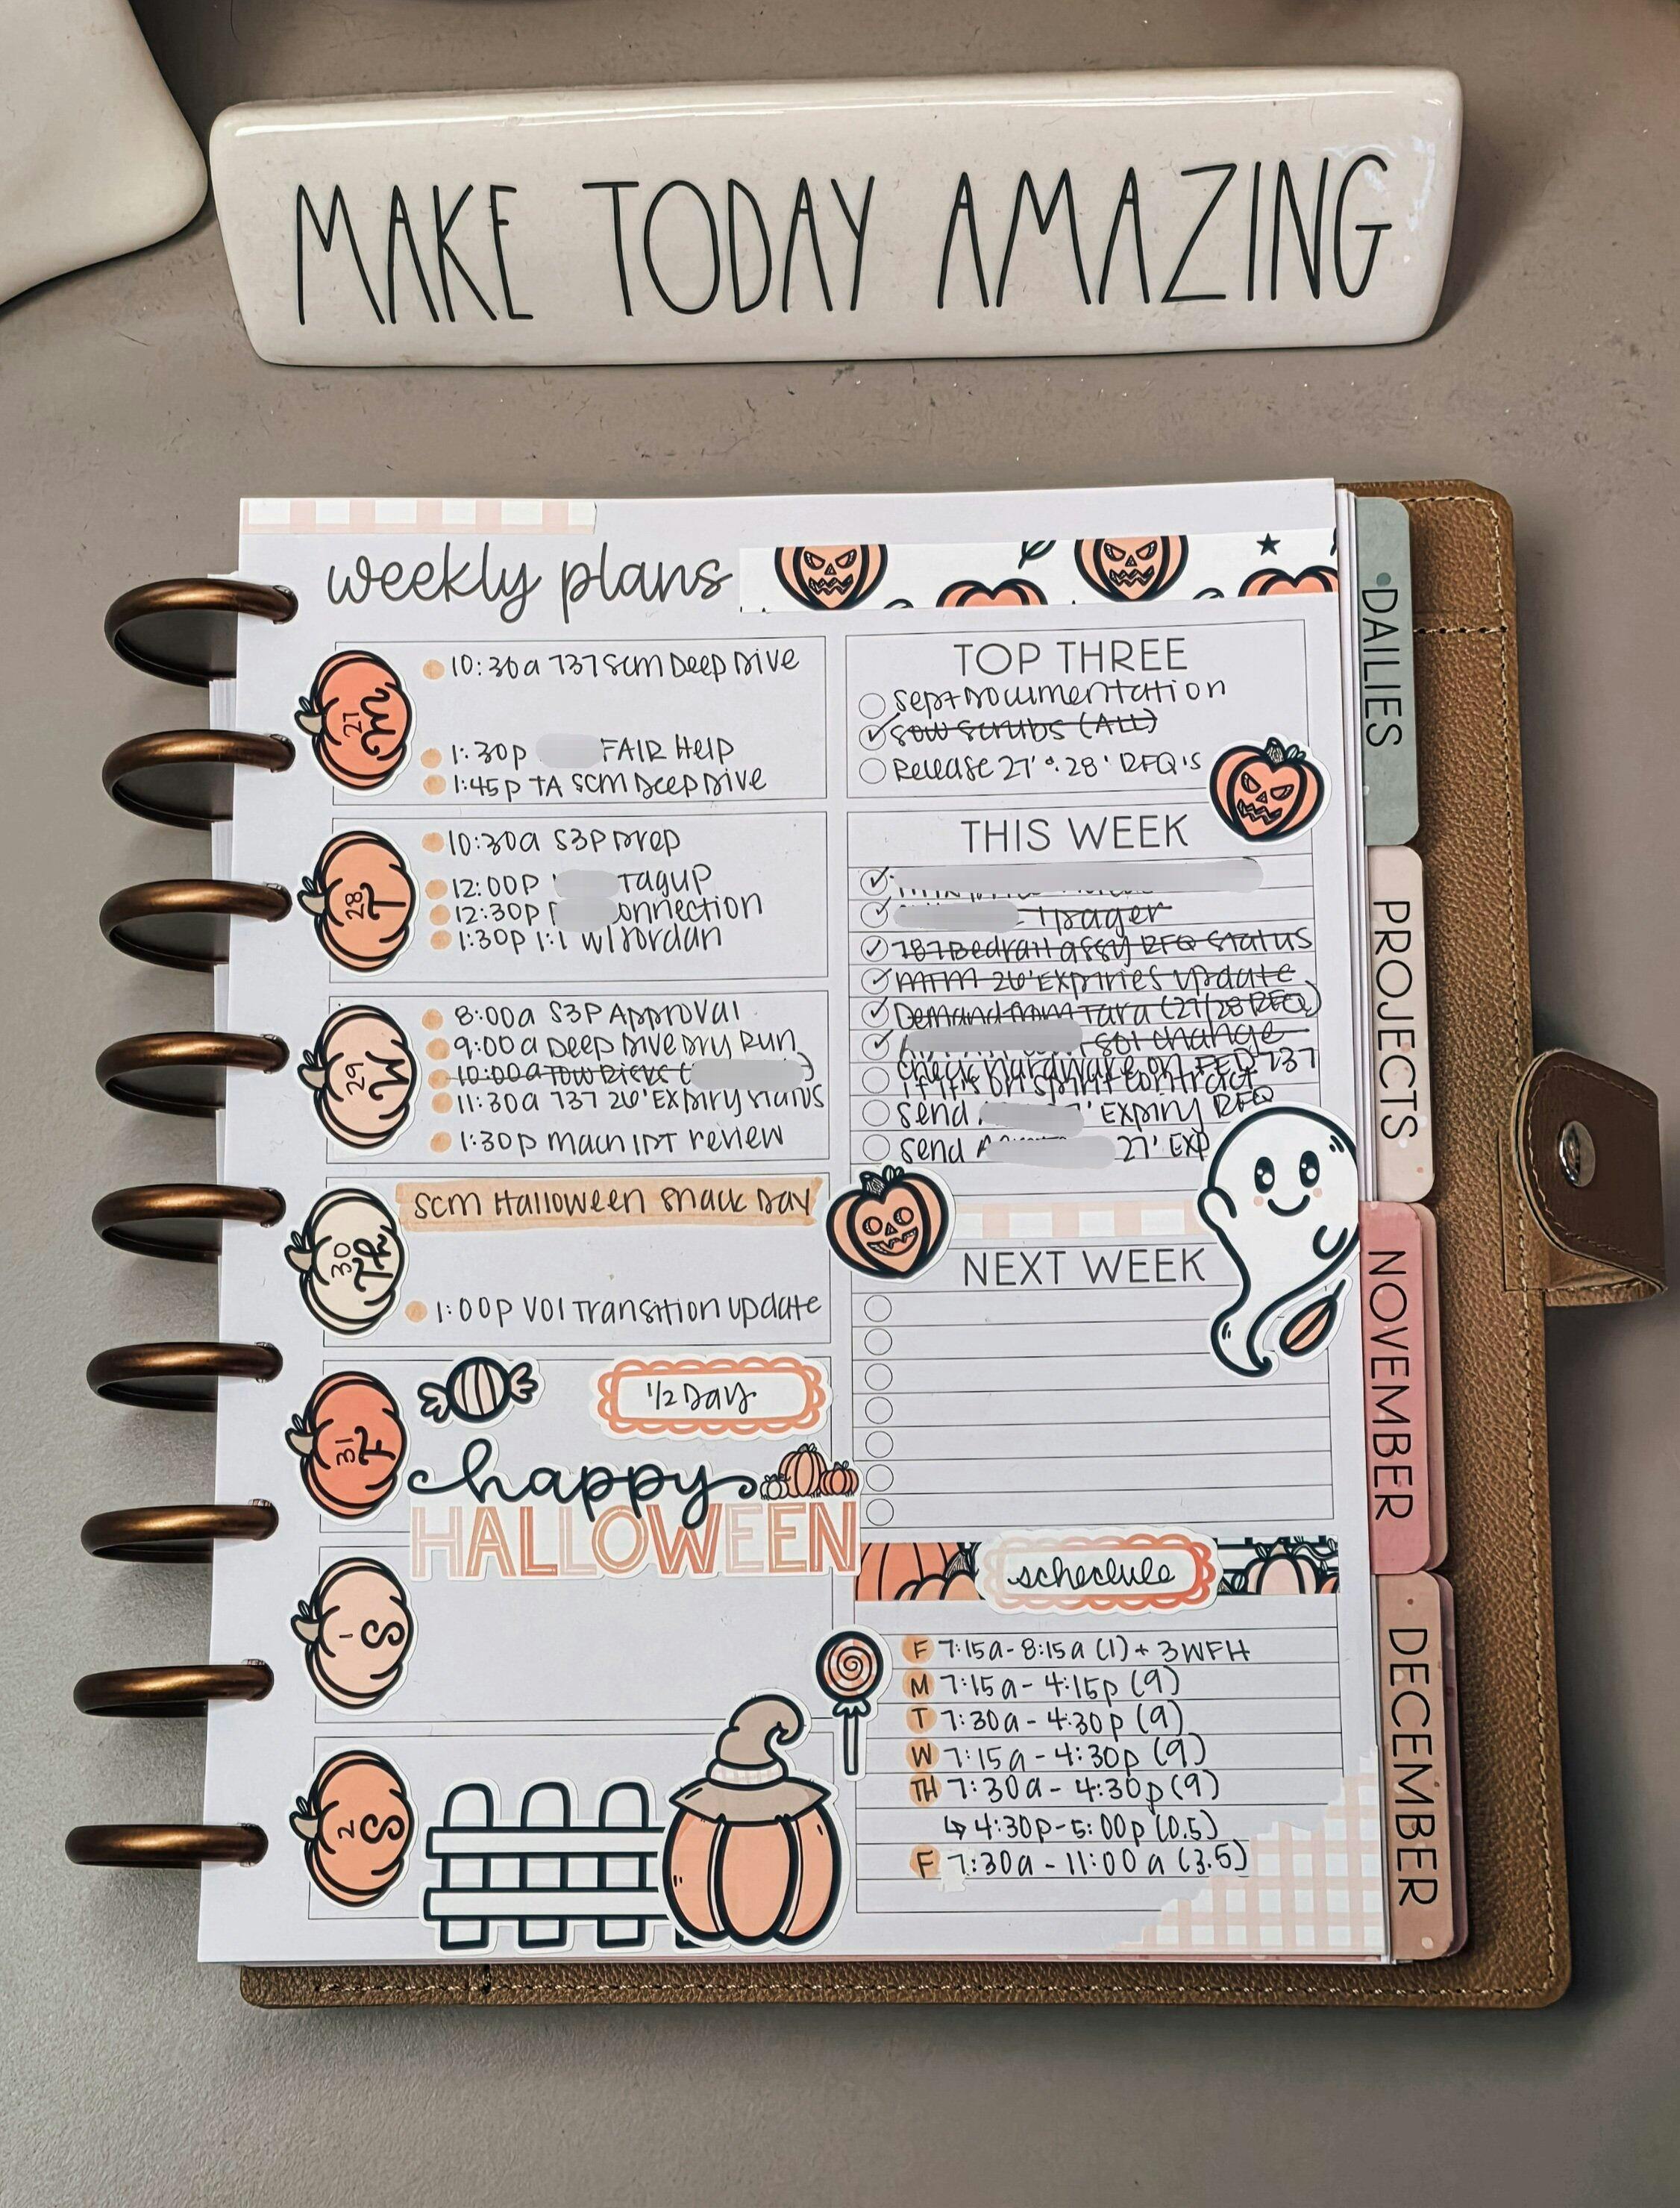 MAKE TODAY AMAZING
weekly plans
27 M
10:30a 737 SCM Deep Dive
1:30p FAIR Help
1:45p TA SCM Deep Dive
28 T
10:30a S3P Prep
12:00p Tagup
12:30p onnection
1:30p 1:1 w/Jordan
29 W
8:00a S3P Approval
9:00a Deep Dive Dry Run
10:00a TOW Risks (
11:30a 737 26' Expiry Status
1:30p Mach IPT review
30 Th
SCM Halloween Snack Day
1:00p VOI Transition Update
31 F
1/2 Day
happy
HALLOWEEN
1 S
2 S
TOP THREE
Sept Documentation
SOW Scrubs (ALL)
Release 27' & 28' RFQ's
THIS WEEK
1pager
787 Bedrail assy RFQ Status
MTM 26' Expiries Update
Demand from Tara (27/28 RFQ)
change
Check hardware on FED 737
if it's on spirit contract
Send ' Expiry RFQ
Send 27' EXP
NEXT WEEK
schedule
F 7:15a - 8:15a (1) + 3 WFH
M 7:15a - 4:15p (9)
T 7:30a - 4:30p (9)
W 7:15a - 4:30p (9)
TH 7:30a - 4:30p (9)
↳ 4:30p - 5:00p (0.5)
F 7:30a - 11:00a (3.5)
DAILIES
PROJECTS
NOVEMBER
DECEMBER